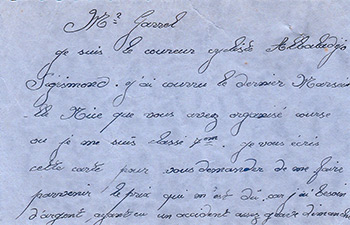 Mr Garrel
je suis le coureur cycliste
Sigismond. j'ai couru le dernier Marsei
lle Nice que vous avez organisé course
ou je me suis classé ème. Je vous écris
cette carte pour vous demander de me faire
parvenir le prix qui m'est dû car j'ai besoin
d'argent ayant eu un accident assez grave dimanche